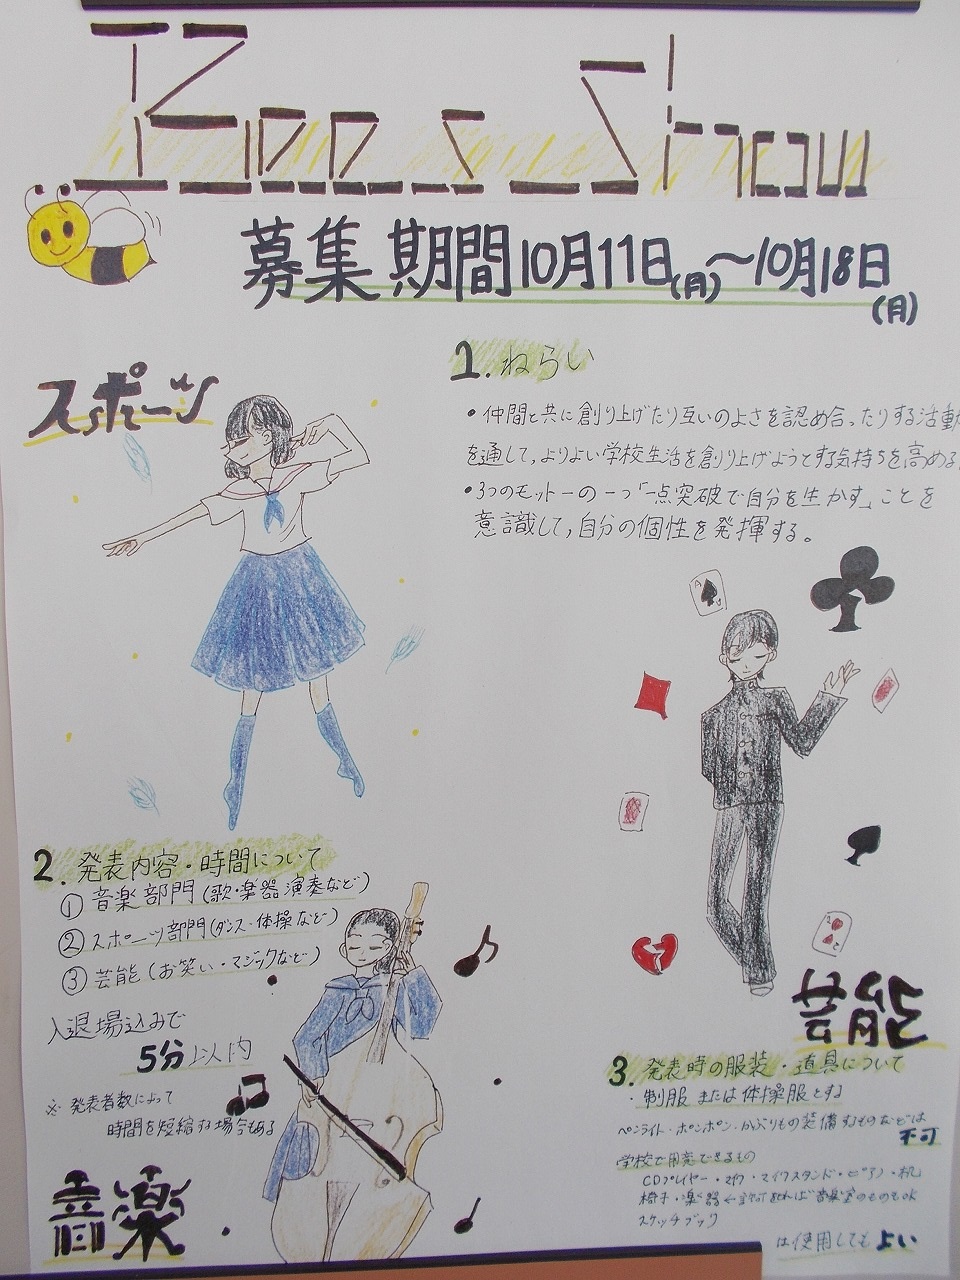 Bees Show
募集期間10月11日(月)〜10月18日(月)
スポーツ
1. ねらい
・仲間と共に創り上げたり互いのよさを認め合ったりする活動
を通して,よりよい学校生活を創り上げようとする気持ちを高める
・3つのモットーの一つ「一点突破で自分を生かす」ことを
意識して,自分の個性を発揮する。
A
2. 発表内容・時間について
① 音楽部門(歌・楽器演奏など)
② スポーツ部門(ダンス・体操など)
③ 芸能(お笑い・マジックなど)
入退場込みで
5分以内
※ 発表者数によって
時間を短縮する場合もある
音楽
芸能
3. 発表時の服装・道具について
・制服または体操服とする
ペンライト・ポンポン・かぶりもの装備するものなどは
不可
学校で用意できるもの
CDプレイヤー・マイク・マイクスタンド・ピアノ・机
椅子・楽器←音楽室のものもOK
スケッチブック
は使用してもよい